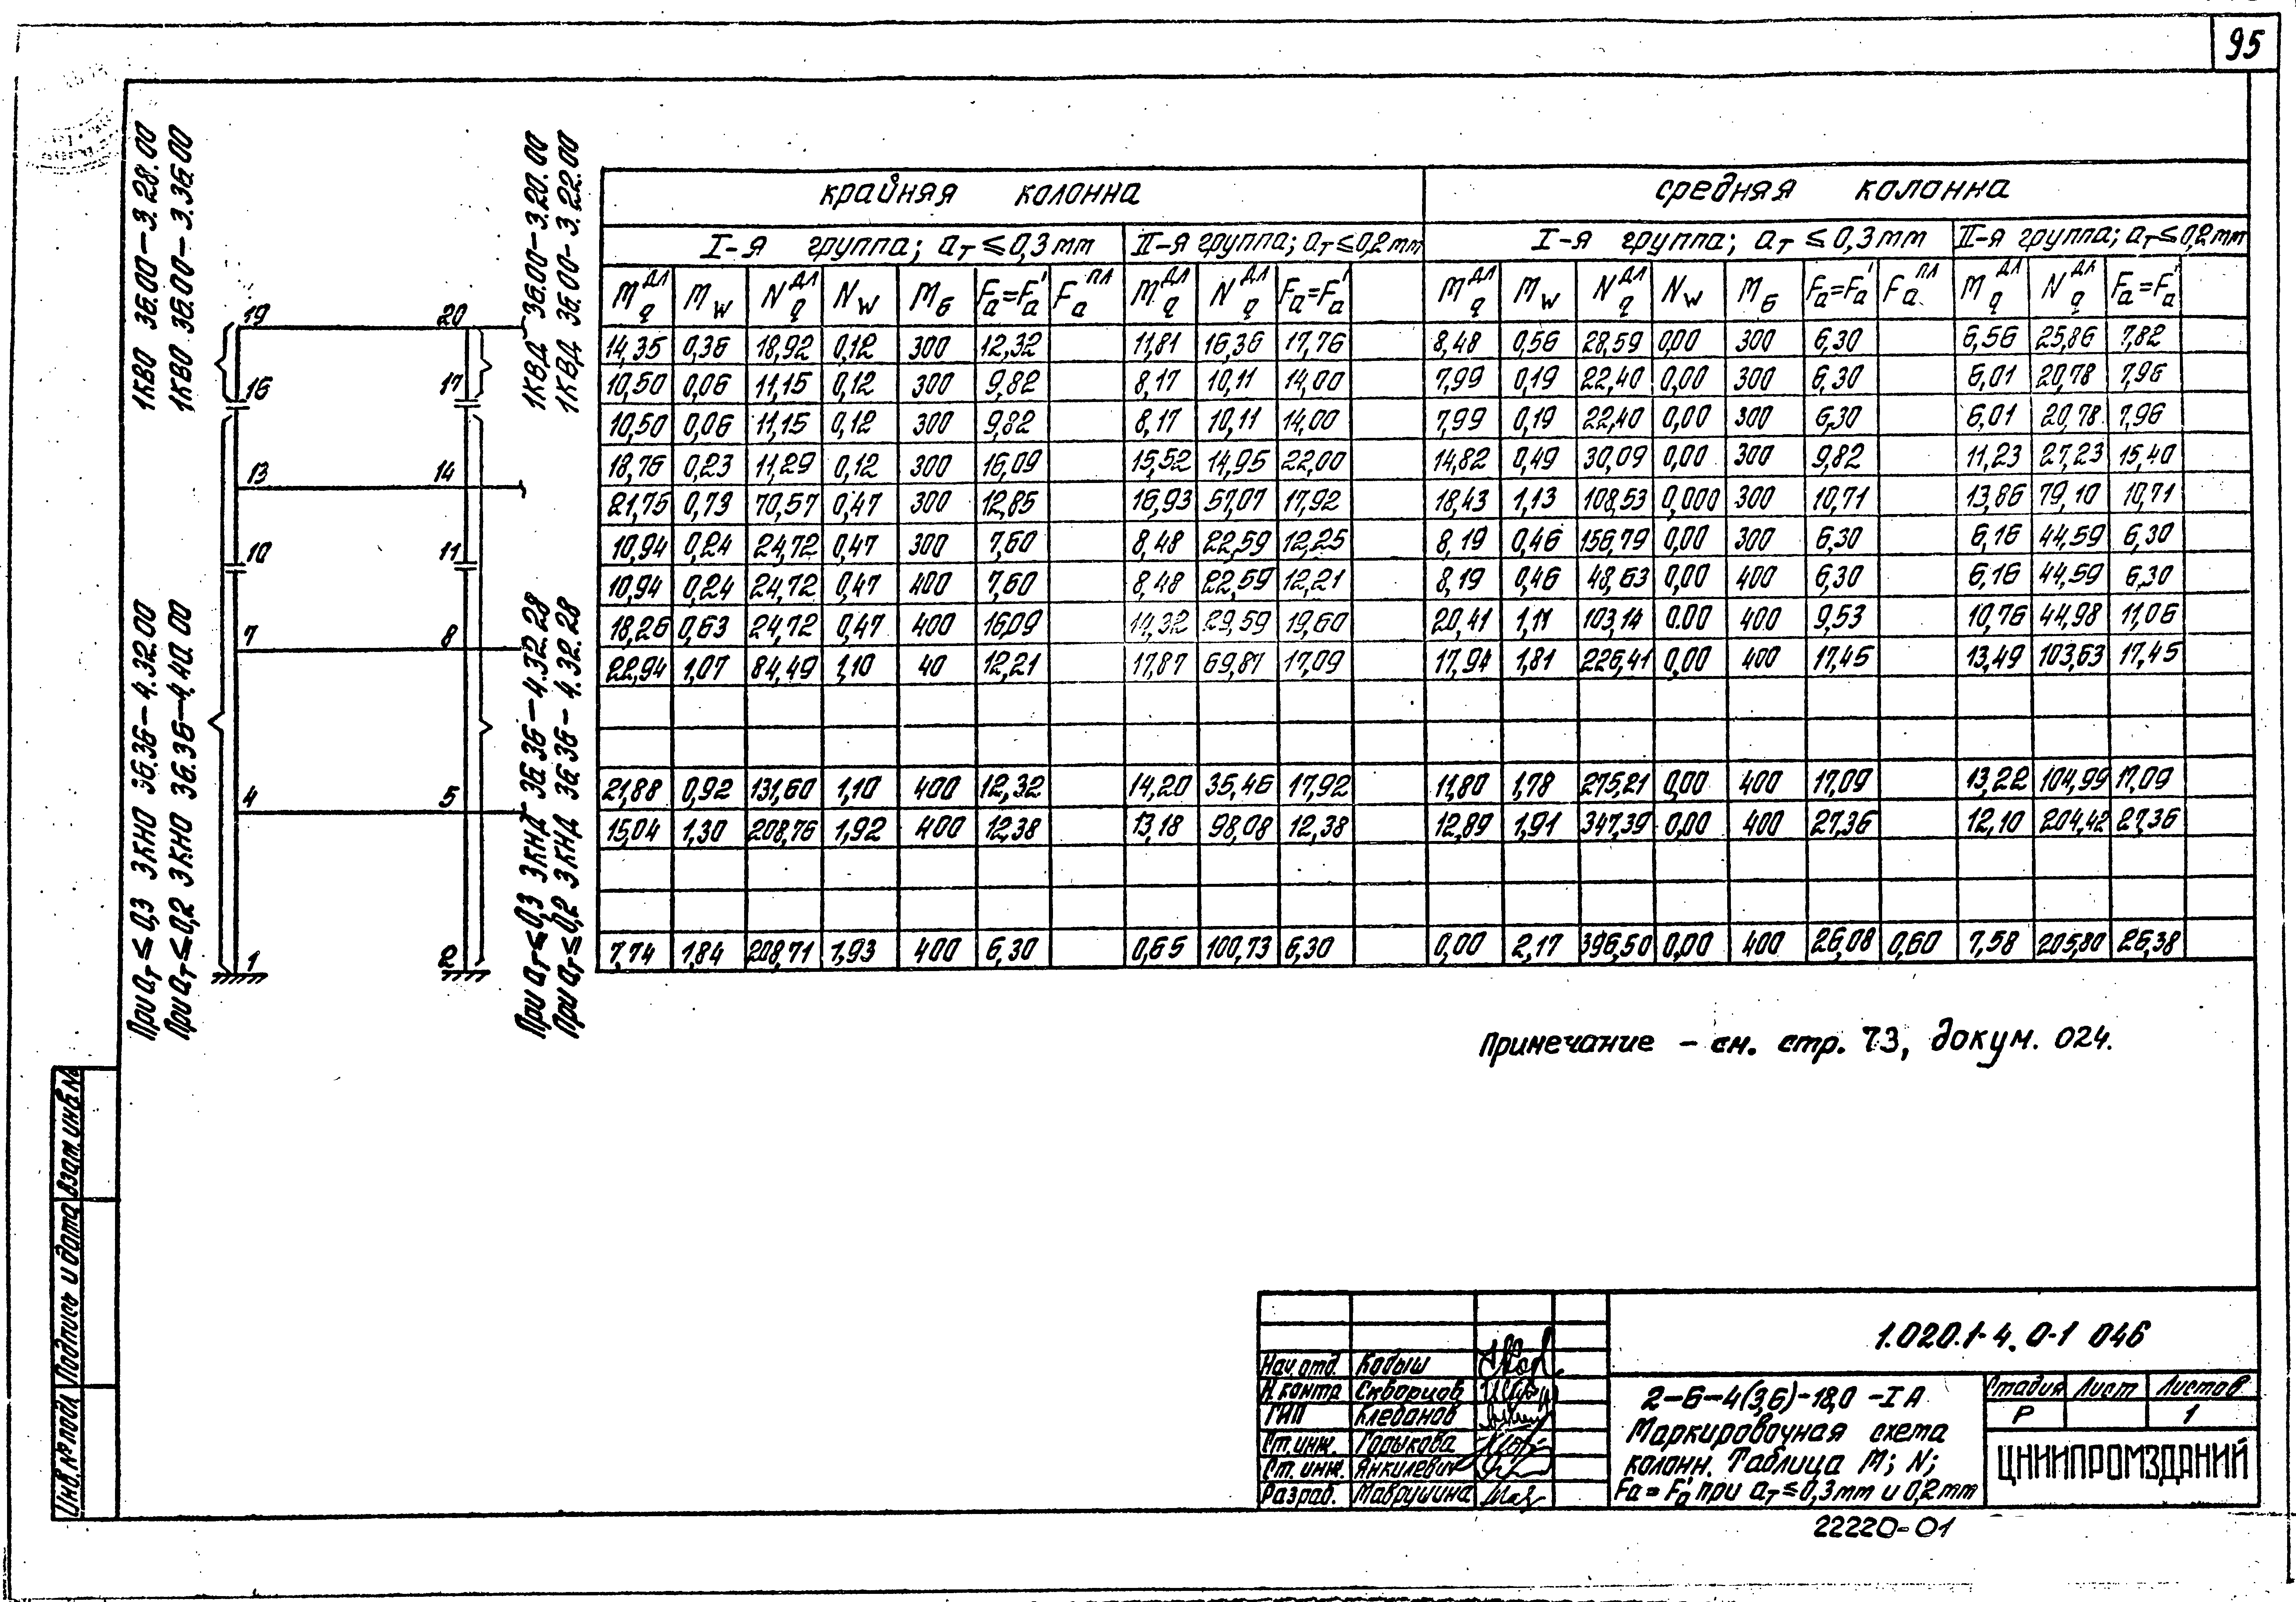 95
1КВО 36.00-3.28.00
1КВО 36.00-3.36.00
1КВД 36.00-3.20.00
1КВД 36.00-3.22.00
При aт≤0,3 3КНО 36.36-4.32.00
При aт≤0,2 3КНО 36.36-4.40.00
При aт≤0,3 3КНД 36.36-4.32.28
При aт≤0,2 3КНД 36.36-4.32.28
19 20
16 17
13 14
10 11
7 8
4 5
1 2
крайняя колонна средняя колонна
I-я группа; aт≤0,3мм II-я группа; aт≤0,2мм I-я группа; aт≤0,3мм II-я группа; aт≤0,2мм
Mqдл Mw Nqдл Nw Mб Fa=Fa' Faпл Mqдл Nqдл Fa=Fa' Mqдл Mw Nqдл Nw Mб Fa=Fa' Faпл Mqдл Nqдл Fa=Fa'
14,35 0,36 18,92 0,12 300 12,32 11,81 16,36 17,76 8,48 0,56 28,59 0,00 300 6,30 6,56 25,86 7,82
10,50 0,06 11,15 0,12 300 9,82 8,17 10,11 14,00 7,99 0,19 22,40 0,00 300 6,30 6,01 20,78 7,96
10,50 0,06 11,15 0,12 300 9,82 8,17 10,11 14,00 7,99 0,19 22,40 0,00 300 6,30 6,01 20,78 7,96
18,76 0,23 11,29 0,12 300 16,09 15,52 14,95 22,00 14,82 0,49 30,09 0,00 300 9,82 11,23 27,23 15,40
21,75 0,73 70,57 0,47 300 12,85 16,93 57,07 17,92 18,43 1,13 108,53 0,000 300 10,71 13,86 79,10 10,71
10,94 0,24 24,72 0,47 300 7,60 8,48 22,59 12,25 8,19 0,46 156,79 0,00 300 6,30 6,16 44,59 6,30
10,94 0,24 24,72 0,47 400 7,60 8,48 22,59 12,21 8,19 0,46 48,63 0,00 400 6,30 6,16 44,59 6,30
18,26 0,63 24,72 0,47 400 16,09 14,32 29,59 19,60 20,41 1,11 103,14 0.00 400 9,53 10,76 44,98 11,06
22,94 1,07 84,49 1,10 40 12,21 17,87 69,87 17,09 17,94 1,81 226,41 0,00 400 17,45 13,49 103,63 17,45
21,88 0,92 131,60 1,10 400 12,32 14,20 35,46 17,92 11,80 1,78 275,21 0,00 400 17,09 13,22 104,99 17,09
15,04 1,30 208,76 1,92 400 12,38 13,18 98,08 12,38 12,89 1,91 347,39 0,00 400 27,36 12,10 204,42 27,36
7,74 1,84 208,71 1,93 400 6,30 0,65 100,73 6,30 0,00 2,17 396,50 0,00 400 26,08 0,60 7,58 205,80 26,38
Примечание - см. стр. 73, докум. 024.
Инв.№подл Подпись и дата Взам.инв.№
1.020.1-4.0-1 046
Нач.отд. Кодыш
Н.контр Скворцов
ГИП Клебанов
Ст.инж. Горькова
Ст.инж. Янкилевич
Разраб. Маврушина
2-6-4(3,6)-18,0-IА
Маркировочная схема
колонн. Таблица M; N;
Fa=Fa' при aт≤0,3мм и 0,2мм
Стадия Лист Листов
Р 1
ЦНИИПРОМЗДАНИЙ
22220-01